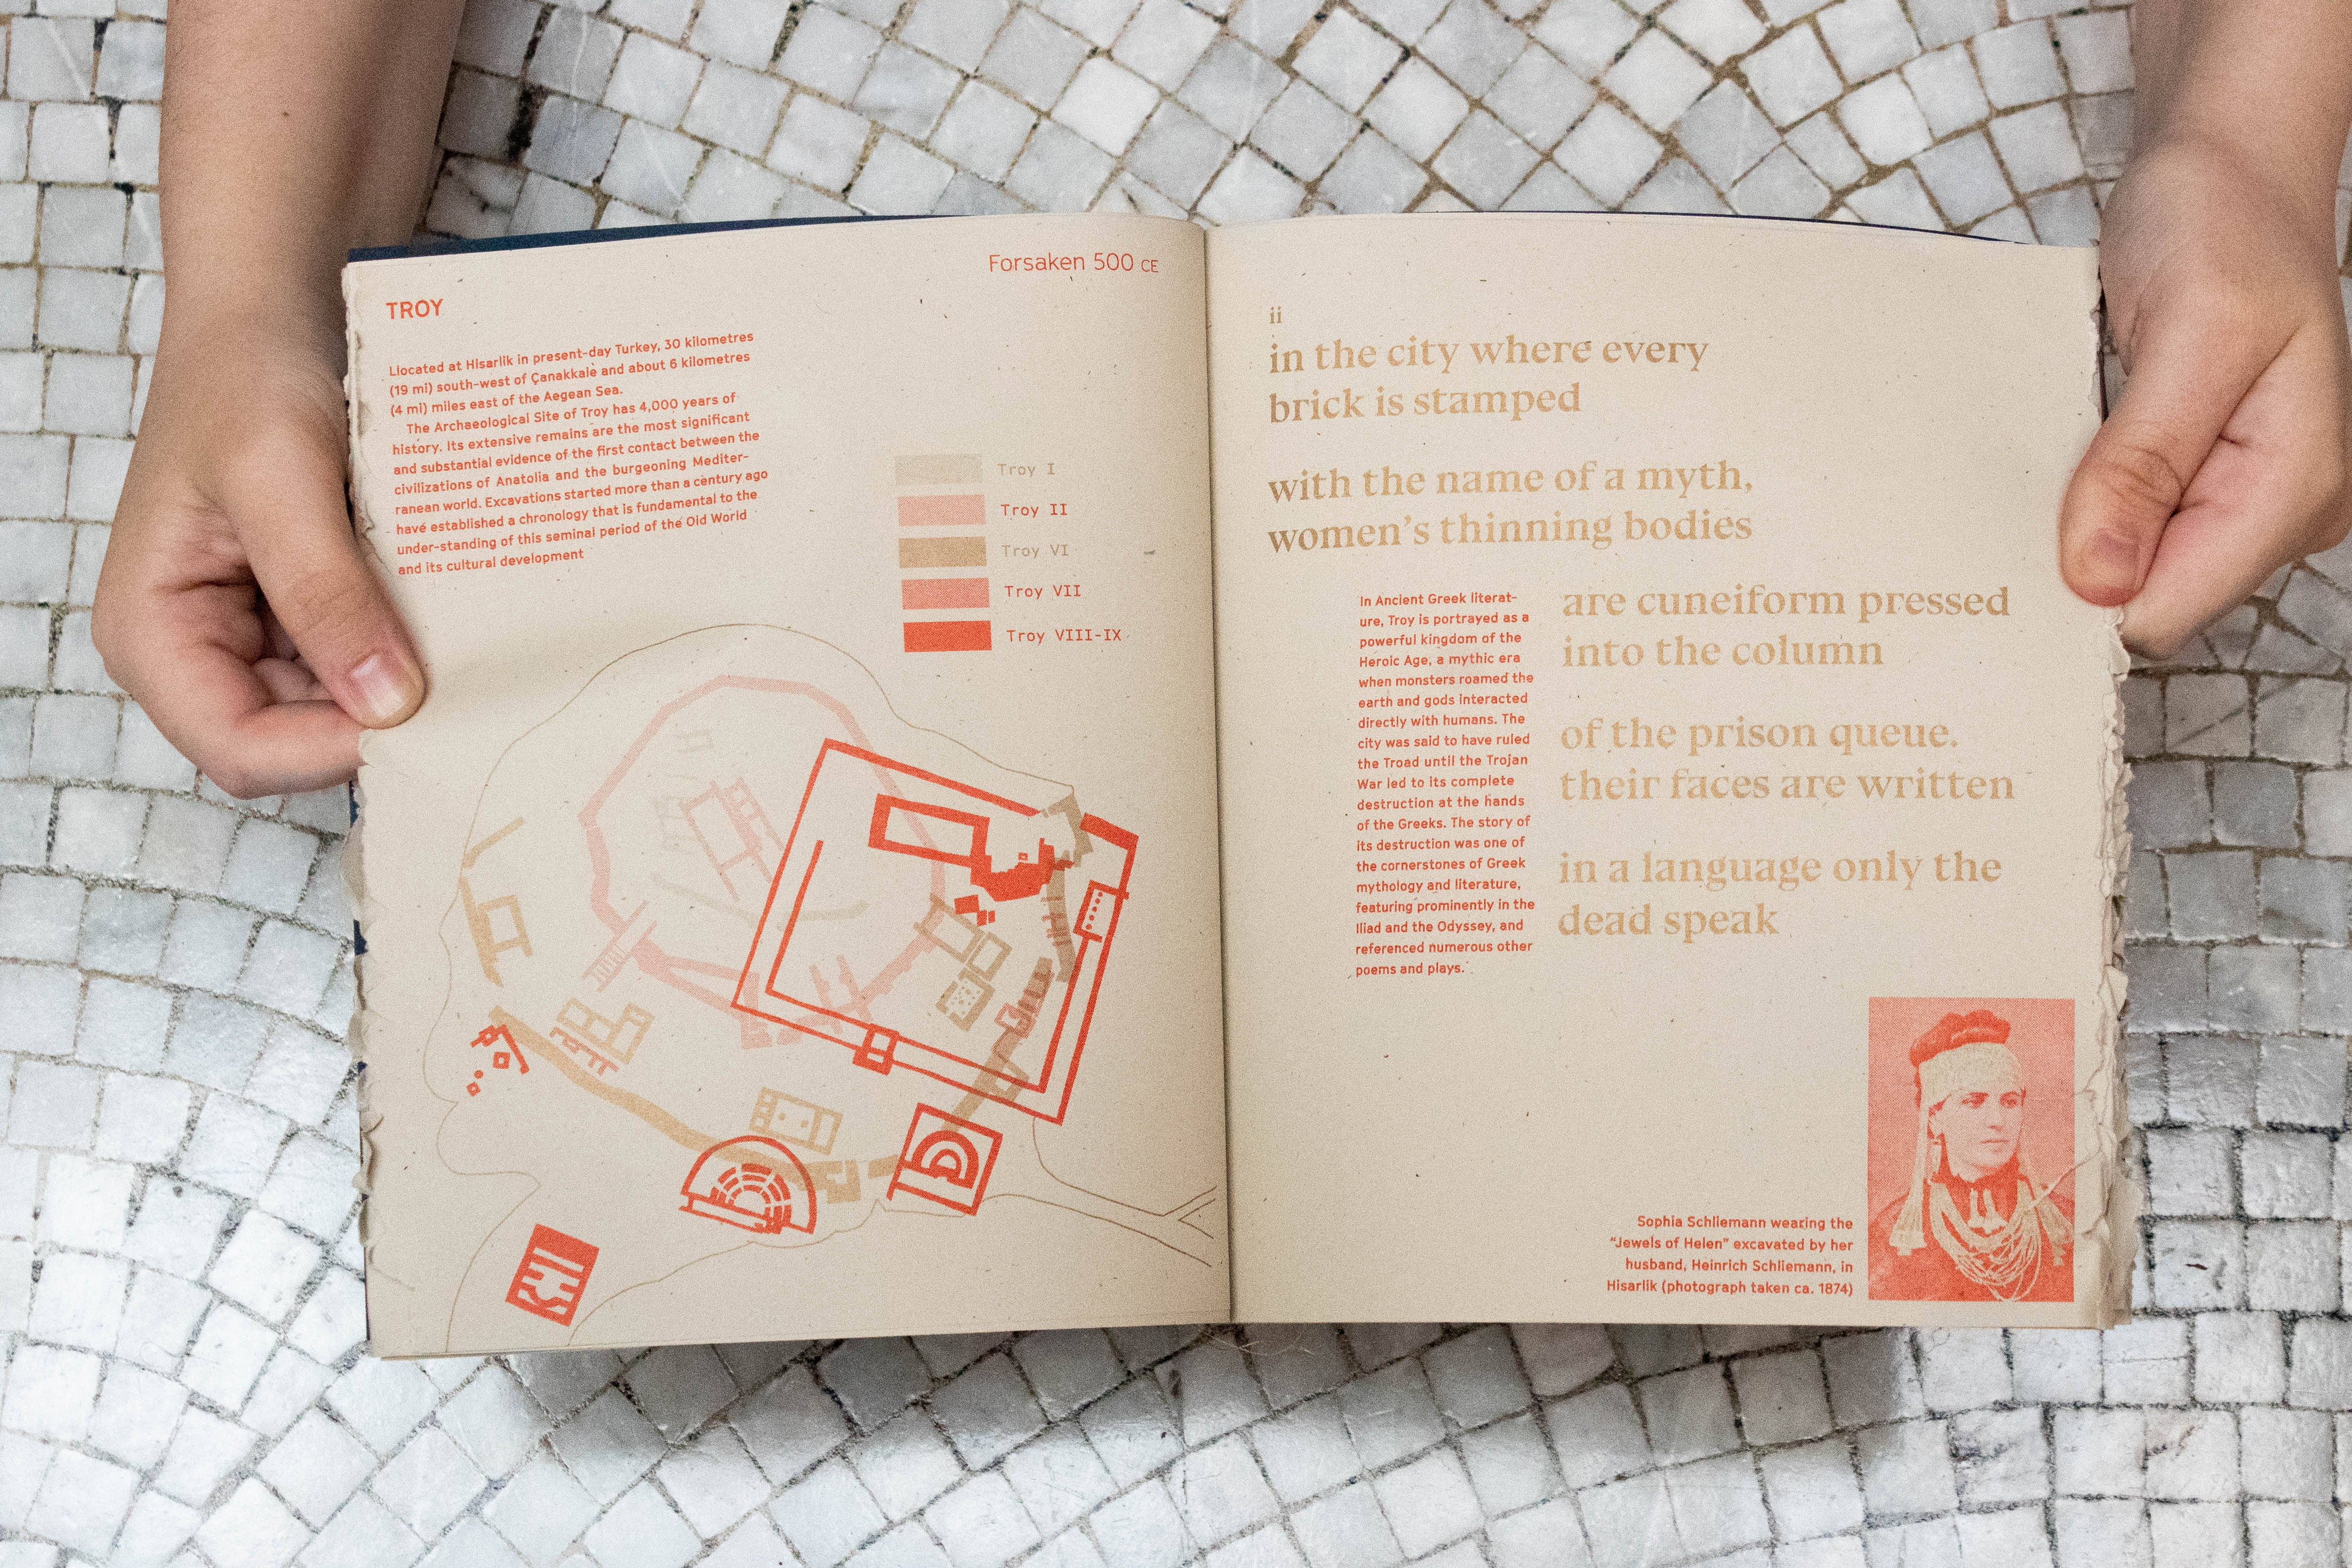 Forsaken 500 CE
TROY
Llocated at Hisarlik in present-day Turkey, 30 kilometres
(19 mi) south-west of Çanakkale and about 6 kilometres
(4 mi) miles east of the Aegean Sea.
The Archaeological Site of Troy has 4,000 years of
history. Its extensive remains are the most significant
and substantial evidence of the first contact between the
civilizations of Anatolia and the burgeoning Mediter-
ranean world. Excavations started more than a century ago
have established a chronology that is fundamental to the
under-standing of this seminal period of the Old World
and its cultural development
Troy I
Troy II
Troy VI
Troy VII
Troy VIII-IX
ii
in the city where every
brick is stamped
with the name of a myth,
women's thinning bodies
are cuneiform pressed
into the column
of the prison queue.
their faces are written
in a language only the
dead speak
In Ancient Greek literat-
ure, Troy is portrayed as a
powerful kingdom of the
Heroic Age, a mythic era
when monsters roamed the
earth and gods interacted
directly with humans. The
city was said to have ruled
the Troad until the Trojan
War led to its complete
destruction at the hands
of the Greeks. The story of
its destruction was one of
the cornerstones of Greek
mythology and literature,
featuring prominently in the
Iliad and the Odyssey, and
referenced numerous other
poems and plays.
Sophia Schliemann wearing the
"Jewels of Helen" excavated by her
husband, Heinrich Schliemann, in
Hisarlik (photograph taken ca. 1874)